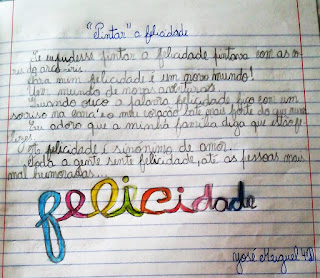 "Pintar" a felicidade
Se eu pudesse pintar a felicidade pintava com as co-
res do arco-íris.
Para mim felicidade é um novo mundo!
Um mundo de novas aventuras.
Quando ouço a palavra felicidade, fico com um
sorriso na cara e o meu coração bate mais forte do que nunca
Eu adoro que a minha família diga que estão fe-
lizes.
A felicidade é sinónimo de amor.
Toda a gente sente felicidade, até as pessoas mais
mal humoradas...
felicidade
José Miguel 4ºD